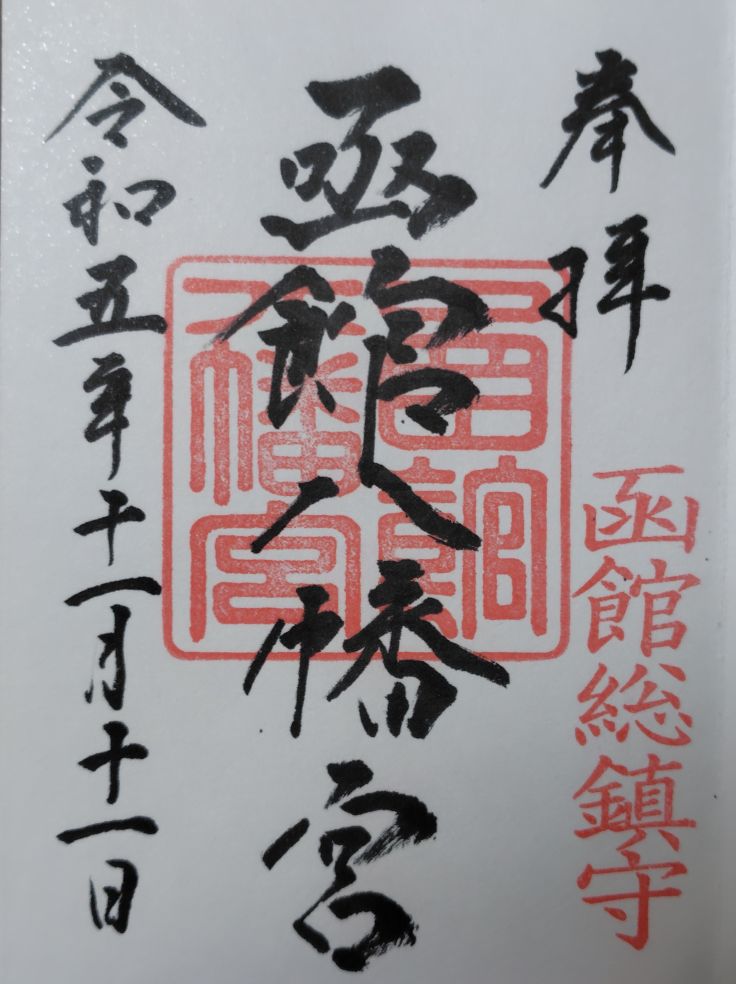 奉拝
函館総鎮守
函館八幡宮
函館八幡宮
令和五年十一月十一日